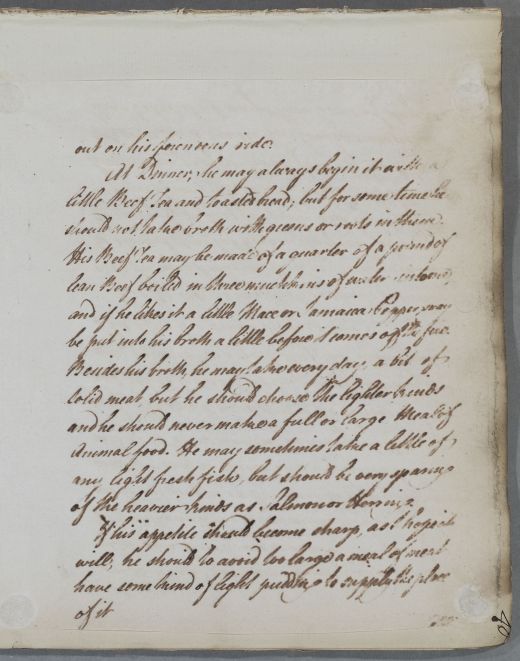 out on his forenoons ride.
At Dinner, he may always begin it with a
little Beef Tea and toasted bread; but for some time he
should not take broth with greens or roots in them.
His Beef Tea may be made of a quarter of a pound of
lean Beef boiled in three mutchkins of water into one,
and if he likes it a little Mace or Jamaica Pepper may
be put into his broth a little before it comes off the fire.
Besides his broth he may take every day, a bit of
solid meat but he should choose the lighter kinds
and he should never make a full or large Meal of
Animal food. He may sometimes take a little of
any light fresh fish, but should be very sparing
of the heavier kinds as Salmon or Herring.
If his appetite should become sharp, as I hope it
will, he should to avoid too large a meal of meat
have some kind of light pudding to supply the place
of it
40